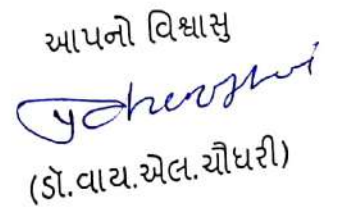 આપનો વિશ્વાસુ
(ડૉ.વાય.એલ.ચૌધરી)